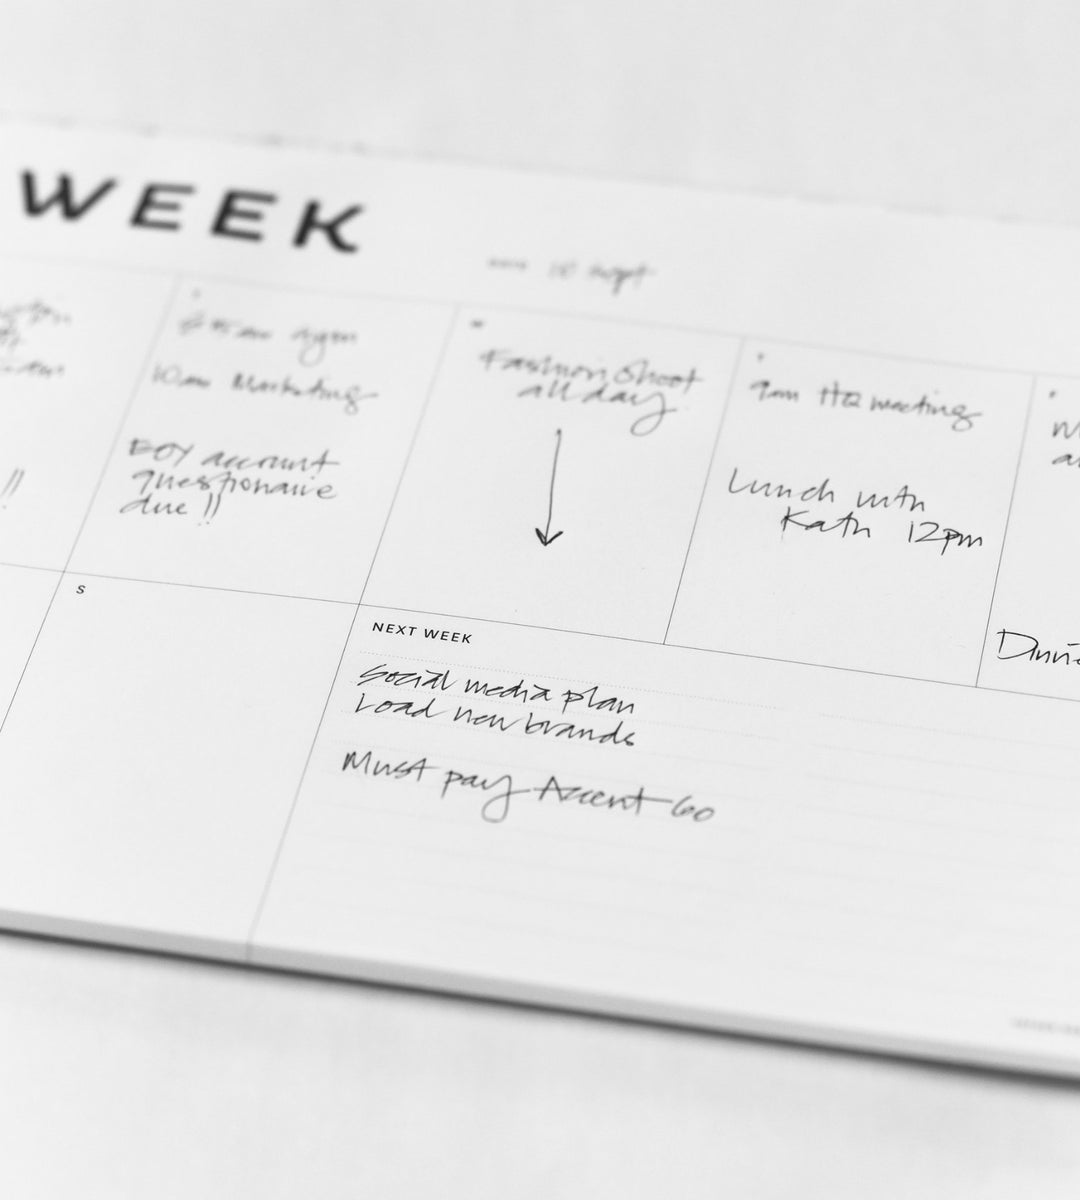 WEEK
Sept
10am Marketing
EOY account
questionaire
due !!
Fashion Shoot
all day
9am HQ meeting
Lunch with
Kath 12pm
S
NEXT WEEK
Social media plan
Load new brands
Must pay Accent Go